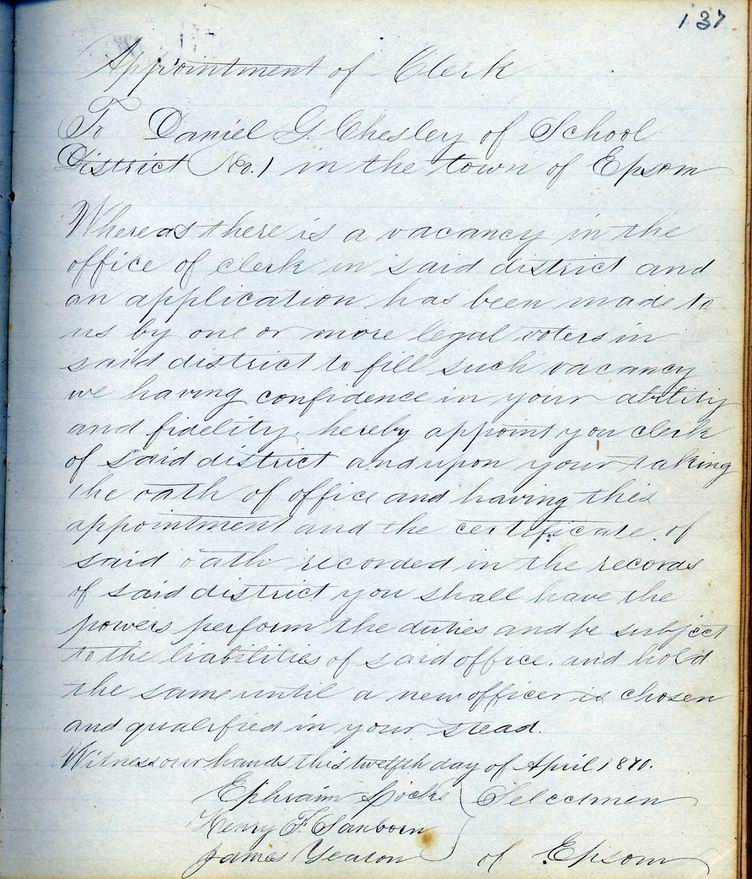 137
Appointment of Clerk
To Daniel G. Chesley of School
District No. 1 in the town of Epsom
Whereas there is a vacancy in the
office of clerk in said district and
an application has been made to
us by one or more legal voters in
said district to fill such vacancy
we having confidence in your ability
and fidelity, hereby appoint you clerk
of said district and upon your taking
the oath of office and having this
appointment and the certificate of
said oath recorded in the records
of said district you shall have the
powers perform the duties and be subject
to the liabilities of said office, and hold
the same until a new officer is chosen
and qualified in your stead.
Witness our hands this twelfth day of April 1870.
Ephraim Locke } Selectmen
Henry F. Sanborn
James Yeaton of Epsom